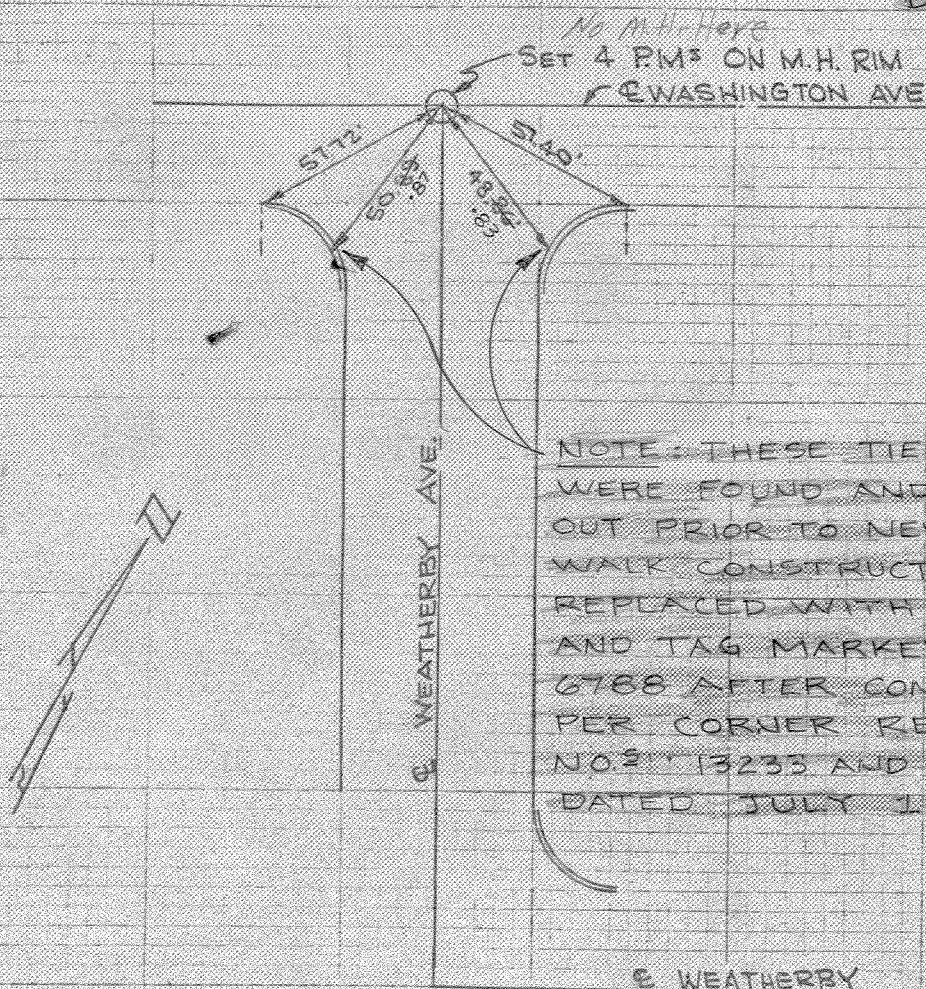 No M.H. Here
SET 4 P.M.s ON M.H. RIM
℄ WASHINGTON AVE
57.72'
57.40'
50.
.87
48.86'
.83
NOTE: THESE TIE
WERE FOUND AND
OUT PRIOR TO NE
WALK CONSTRUCT
REPLACED WITH
AND TAG MARKE
6788 AFTER CON
PER CORNER RE
NO.S 13233 AND
DATED JULY 1
℄ WEATHERBY AVE.
℄ WEATHERBY